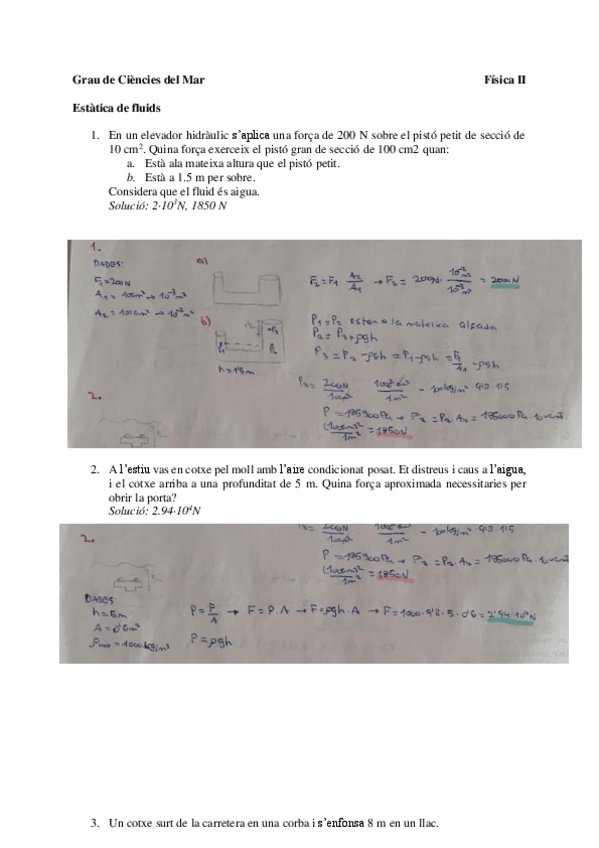 Grau de Ciències del Mar Física II
Estàtica de fluids
1. En un elevador hidràulic s'aplica una força de 200 N sobre el pistó petit de secció de
10 cm². Quina força exerceix el pistó gran de secció de 100 cm2 quan:
a. Està ala mateixa altura que el pistó petit.
b. Està a 1.5 m per sobre.
Considera que el fluid és aigua.
Solució: 2·10³N, 1850 N
1.
DADES:
F₁=200N
A₁ = 10cm² → 10⁻³m²
A₂ = 100cm² → 10⁻²m²
a)
F₂=F₁ A₂/A₁ → F₂ = 200N · 10⁻²m²/10⁻³m² = 2000N
b)
h=1'5m
P₁=P₂ estan a la mateixa alçada
P₂ = P₃+ρgh
P₃ = P₂ -ρgh = P₁-ρgh = F₁/A₁ -ρgh
= 1850N
2.
2. A l'estiu vas en cotxe pel moll amb l'aire condicionat posat. Et distreus i caus a l'aigua,
i el cotxe arriba a una profunditat de 5 m. Quina força aproximada necessitaries per
obrir la porta?
Solució: 2.94·10⁴N
2.
= 1850N
DADES:
h=5m
A=0'6m²
= 1000kg/m³
P=F/A → F=P.A → F=ρgh.A → F=1000·9'8·5·0'6=2'94·10⁴N
P=ρgh
3. Un cotxe surt de la carretera en una corba i s'enfonsa 8 m en un llac.